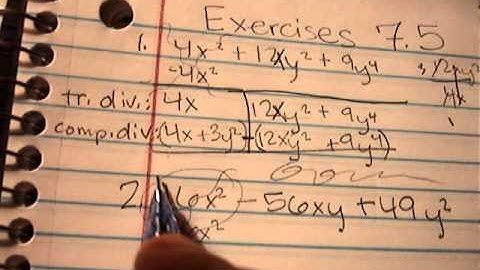 Exercises 7.5
1. 4x² + 12xy² + 9y⁴
-4x²
tr. div.: 4x 12xy² + 9y⁴
comp. div: (4x + 3y²) -(12xy² + 9y⁴)
2. 16x² - 56xy + 49y²